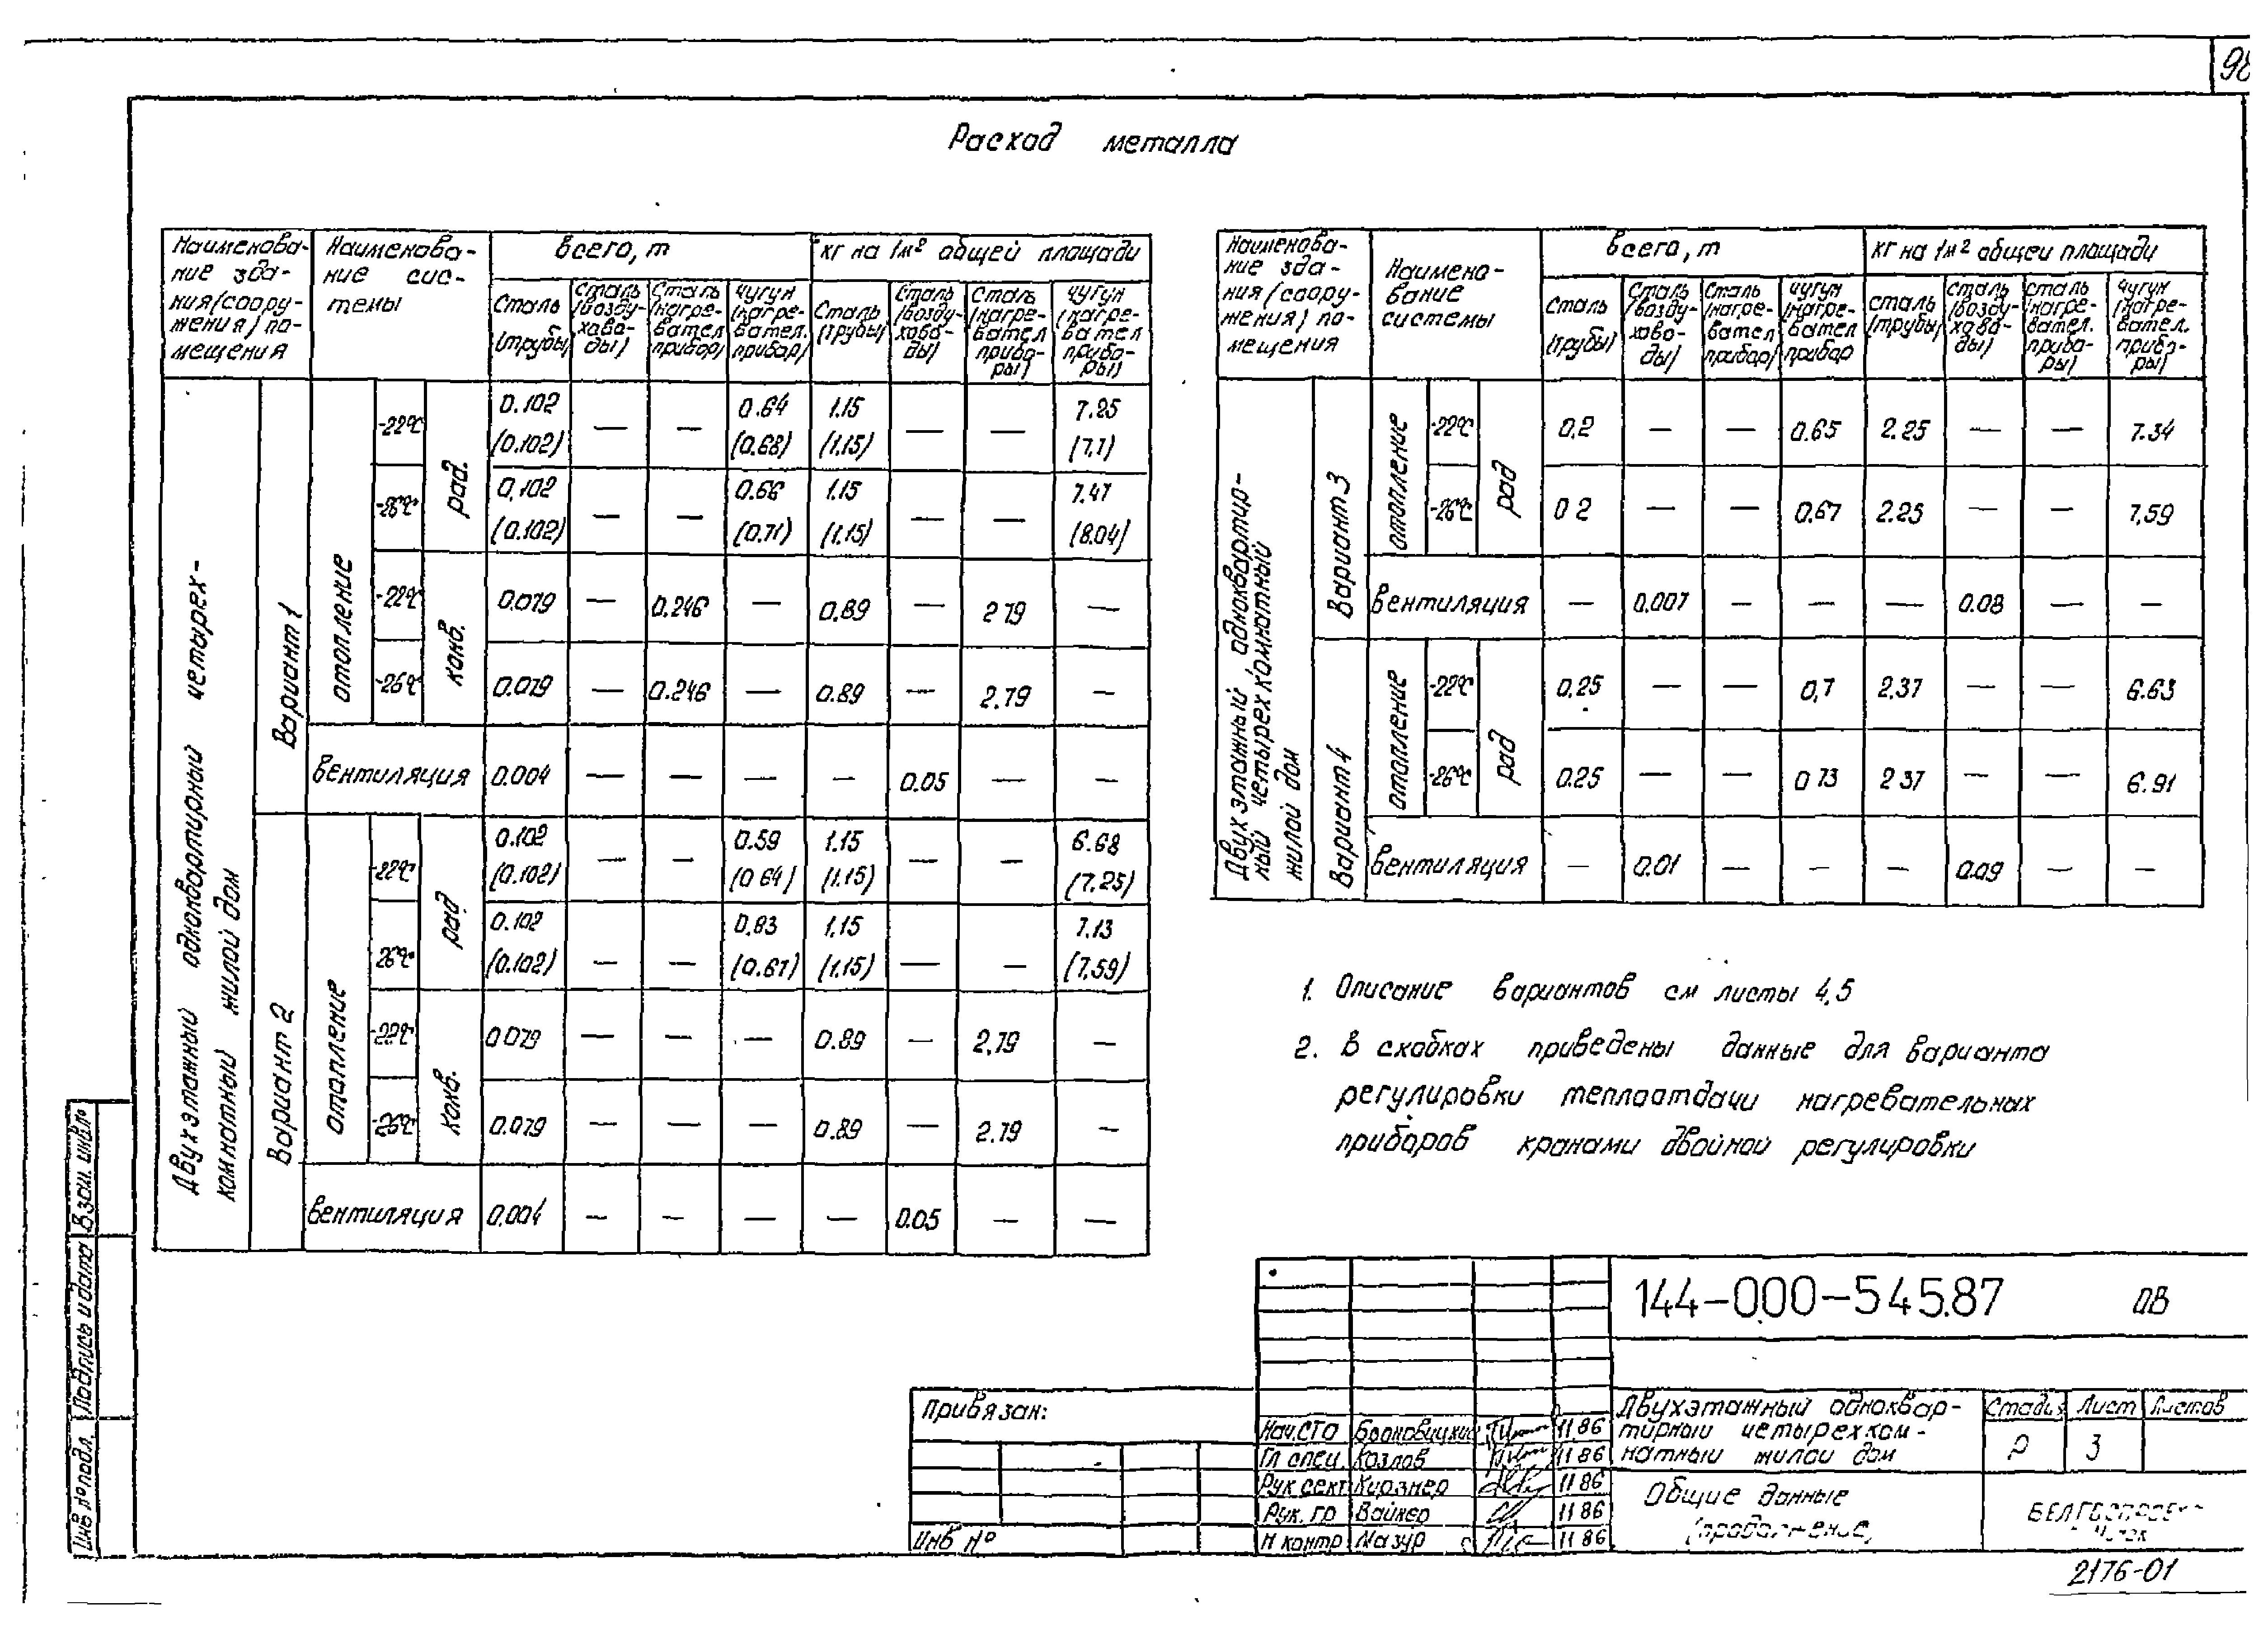 98
Расход металла
Наименова-
ние зда-
ния (соору-
жения) по-
мещения
Наименова-
ние сис-
темы
Всего, т
кг на 1м² общей площади
Сталь (трубы)
Сталь (возду-хово-ды)
Сталь (нагре-вател прибор)
чугун (нагре-вател. прибор)
Сталь (трубы)
Сталь (возду-хово-ды)
Сталь (нагре-вател прибо-ры)
чугун (нагре-вател прибо-ры)
Двухэтажный одноквартирный четырех-
комнатный жилой дом
Вариант 1
отопление
рад.
-22°С 0.102 — — 0.64 1.15 — — 7.25
(0.102) (0.68) (1.15) (7.1)
-26°С 0,102 — — 0.66 1.15 — — 7.47
(0.102) (0.71) (1.15) (8.04)
конв.
-22°С 0.079 — 0.246 — 0.89 — 2 79 —
-26°С 0.079 — 0.246 — 0.89 — 2.79 —
Вентиляция 0.004 — — — — 0.05 — —
Вариант 2
отопление
рад
-22°С 0.102 — — 0.59 1.15 — — 6.68
(0.102) (0 64) (1.15) (7.25)
26°С 0.102 — — 0,83 1,15 — — 7.13
(0.102) (0.67) (1.15) (7.59)
конв.
-22°С 0 079 — — — 0.89 — 2,79 —
-26°С 0.079 — — — 0.89 — 2.79 —
Вентиляция 0.004 — — — — 0.05 — —
Наименова-
ние зда-
ния (соору-
жения) по-
мещения
Наимено-
вание
системы
Всего, т
кг на 1м² общей площади
Сталь (трубы)
Сталь (возду-хово-ды)
Сталь (нагре-вател прибор)
чугун (нагре-вател прибор
сталь (трубы)
Сталь (возду-хово-ды)
сталь (нагре-вател. прибо-ры)
чугун (нагре-вател. прибо-ры)
Двухэтажный, одноквартир-
ный четырехкомнатный
жилой дом
Вариант 3
отопление
рад
-22°С 0,2 — — 0.65 2.25 — — 7.34
-26°С 0 2 — — 0.67 2.25 — — 7,59
Вентиляция — 0.007 — — — 0.08 — —
Вариант 4
отопление
рад
-22°С 0,25 — — 0,7 2,37 — — 6.63
-26°С 0.25 — — 0 73 2 37 — — 6.91
Вентиляция — 0.01 — — — 0.09 — —
1. Описание вариантов см листы 4,5
2. В скобках приведены данные для варианта
регулировки теплоотдачи нагревательных
приборов кранами двойной регулировки
144-000-545.87 ОВ
Привязан:
Инв №
Нач.СТО 11 86
Гл спец. Козлов 11 86
Рук сект Кирзнер 11 86
Рук. гр Вайнер 11 86
Н контр Мазур 11 86
Двухэтажный одноквар-
тирный четырехком-
натный жилой дом
Стадия Лист Листов
Р 3
Общие данные
(продолжение)
2176-01
Инв № подл.
Подпись и дата
Взам. инв.№